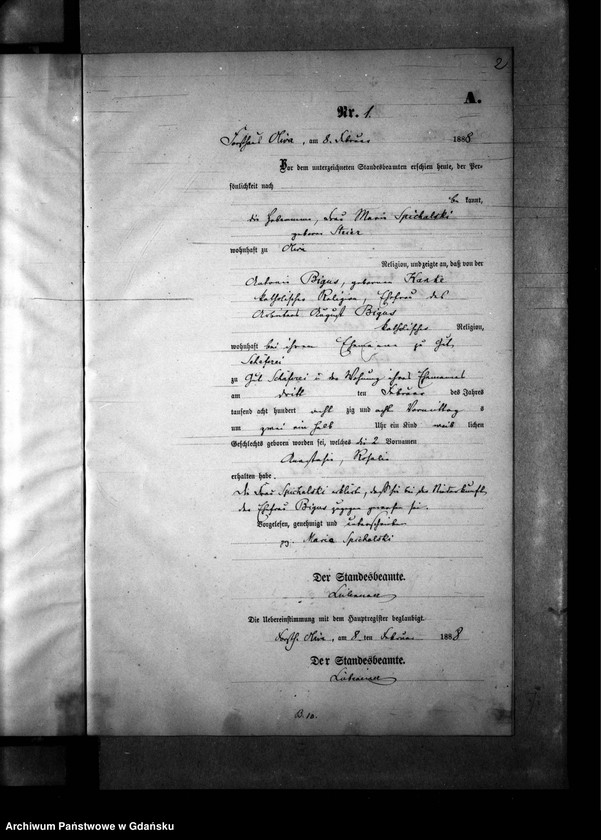 2
A.
Nr. 1.
Forsthaus Oliva, am 8. Februar 1888
Vor dem unterzeichneten Standesbeamten erschien heute, der Per-
sönlichkeit nach
be kannt,
die Hebamme, Frau Marie Spichalski
geborene
wohnhaft zu Oliva
Religion, und zeigte an, daß von der
Antonie Bigus, geborenen
katholischer Religion, Ehefrau des
Arbeiters August Bigus
katholischer Religion,
wohnhaft bei ihrem Ehemanne zu Gut
Schäferei
zu Gut Schäferei in der Wohnung ihres Ehemannes
am dritt ten Februar des Jahres
tausend acht hundert acht zig und acht Vormittag s
um zwei ein halb Uhr ein Kind weib lichen
Geschlechts geboren worden sei, welches die 2 Vornamen
Anastasia, Rosalie
erhalten habe.
Die Frau Spichalski erklärt, daß sie bei der Niederkunft
der Ehefrau Bigus zugegen gewesen sei.
Vorgelesen, genehmigt und unterschrieben
gz. Marie Spichalski
Der Standesbeamte.
Die Uebereinstimmung mit dem Hauptregister beglaubigt.
Forsth. Oliva, am 8 ten Februar 1888
Der Standesbeamte.
B. 10.
Archiwum Państwowe w Gdańsku